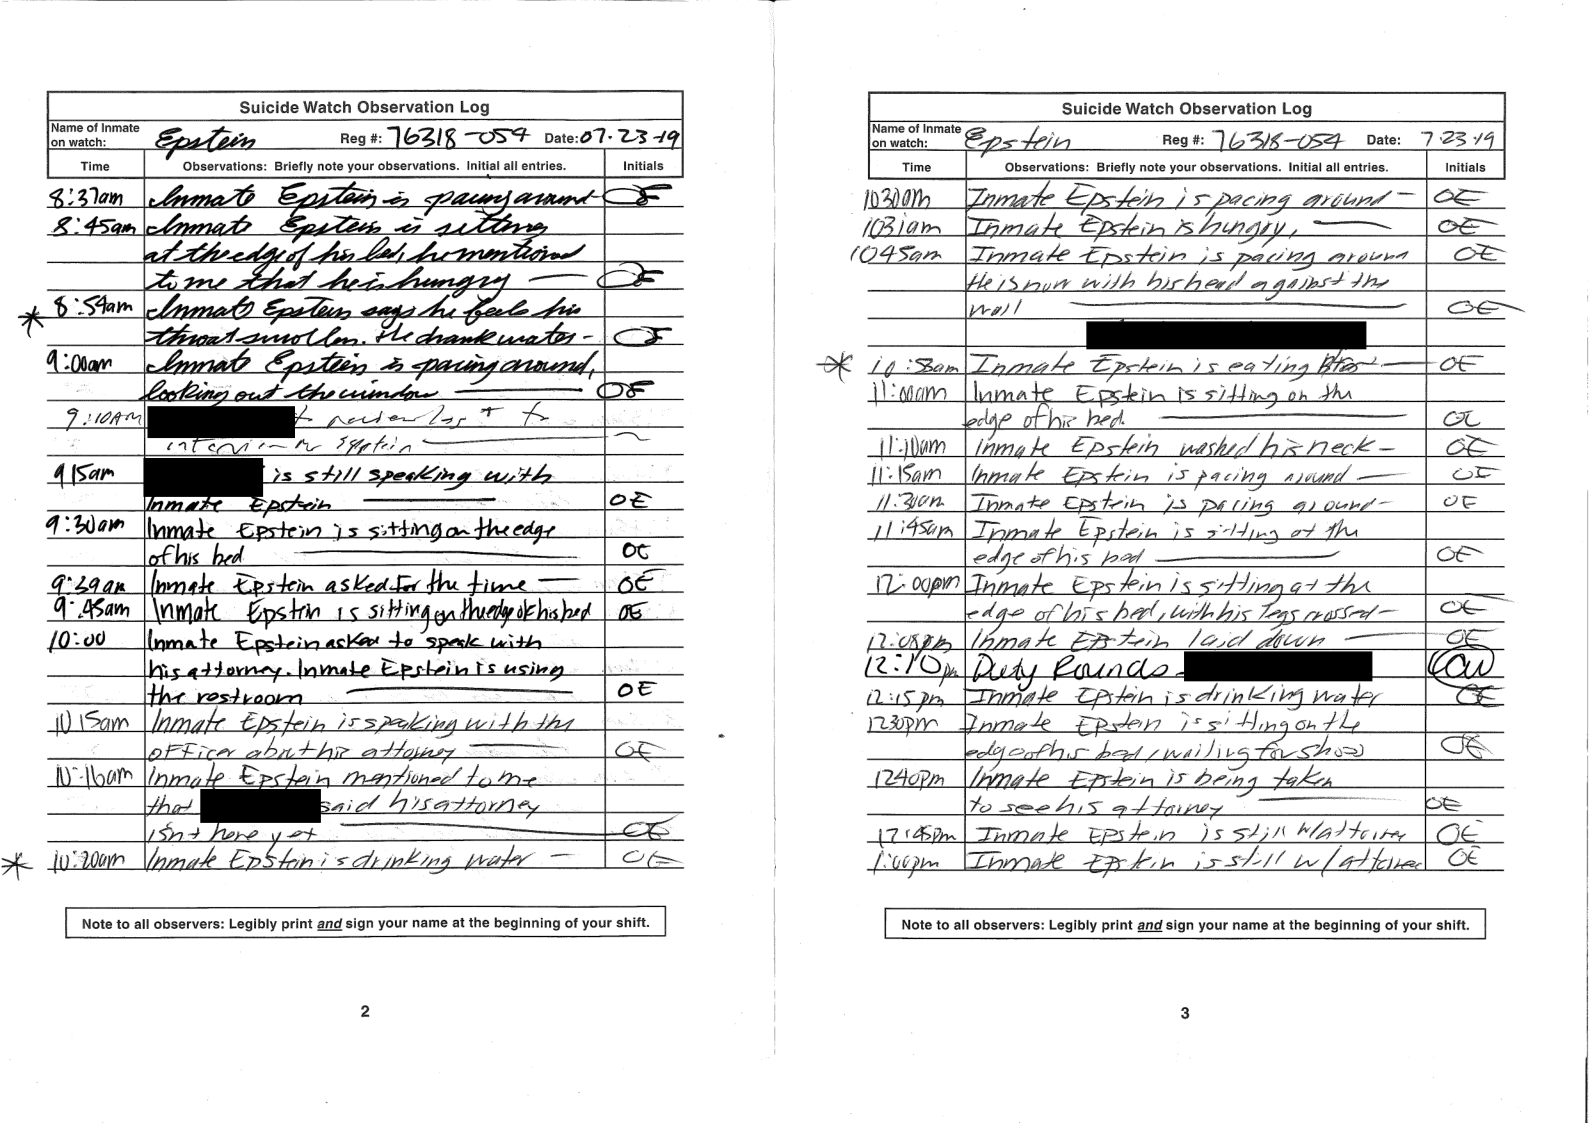 Suicide Watch Observation Log
Name of Inmate on watch: Epstein Reg #: 76318-054 Date: 07-23-19
Time Observations: Briefly note your observations. Initial all entries. Initials
8:37am Inmate Epstein is pacing around OE
8:45am Inmate Epstein is sitting
at the edge of his bed, he mentioned
to me that he is hungry OE
* 8:54am Inmate Epstein says he feels his
throat swollen. He drank water - OE
9:00am Inmate Epstein is pacing around,
looking out the window OE
9:10AM review log + to
interview Epstein
915am is still speaking with
Inmate Epstein OE
9:30am Inmate Epstein is sitting on the edge
of his bed OE
9:39am Inmate Epstein asked for the time OE
9:45am Inmate Epstein is sitting on the edge of his bed OE
10:00 Inmate Epstein asked to speak with
his attorney. Inmate Epstein is using
the restroom OE
10 15am Inmate Epstein is speaking with the
officer about his attorney OE
10:16am Inmate Epstein mentioned to me
that said his attorney
isn't here yet OE
* 10:20am Inmate Epstein is drinking water OE
Note to all observers: Legibly print and sign your name at the beginning of your shift.
2
Suicide Watch Observation Log
Name of Inmate on watch: Epstein Reg #: 76318-054 Date: 7-23-19
Time Observations: Briefly note your observations. Initial all entries. Initials
1030am Inmate Epstein is pacing around OE
1031am Inmate Epstein is hungry, OE
1045am Inmate Epstein is pacing around OE
He is now with his head against the
wall OE
* 10:58am Inmate Epstein is eating OE
11:00am Inmate Epstein is sitting on the
edge of his bed. OE
11:10am Inmate Epstein washed his neck OE
11:15am Inmate Epstein is pacing around OE
11:30am Inmate Epstein is pacing around OE
11:45am Inmate Epstein is sitting at the
edge of his bed OE
12:00pm Inmate Epstein is sitting at the
edge of his bed, with his legs crossed OE
12:08pm Inmate Epstein laid down OE
12:10pm Duty Rounds -
12:15pm Inmate Epstein is drinking water OE
1230pm Inmate Epstein is sitting on the
edge of his bed, waiting for shoes OE
1240pm Inmate Epstein is being taken
to see his attorney OE
12:45pm Inmate Epstein is still w/attorney OE
1:00pm Inmate Epstein is still w/attorney OE
Note to all observers: Legibly print and sign your name at the beginning of your shift.
3